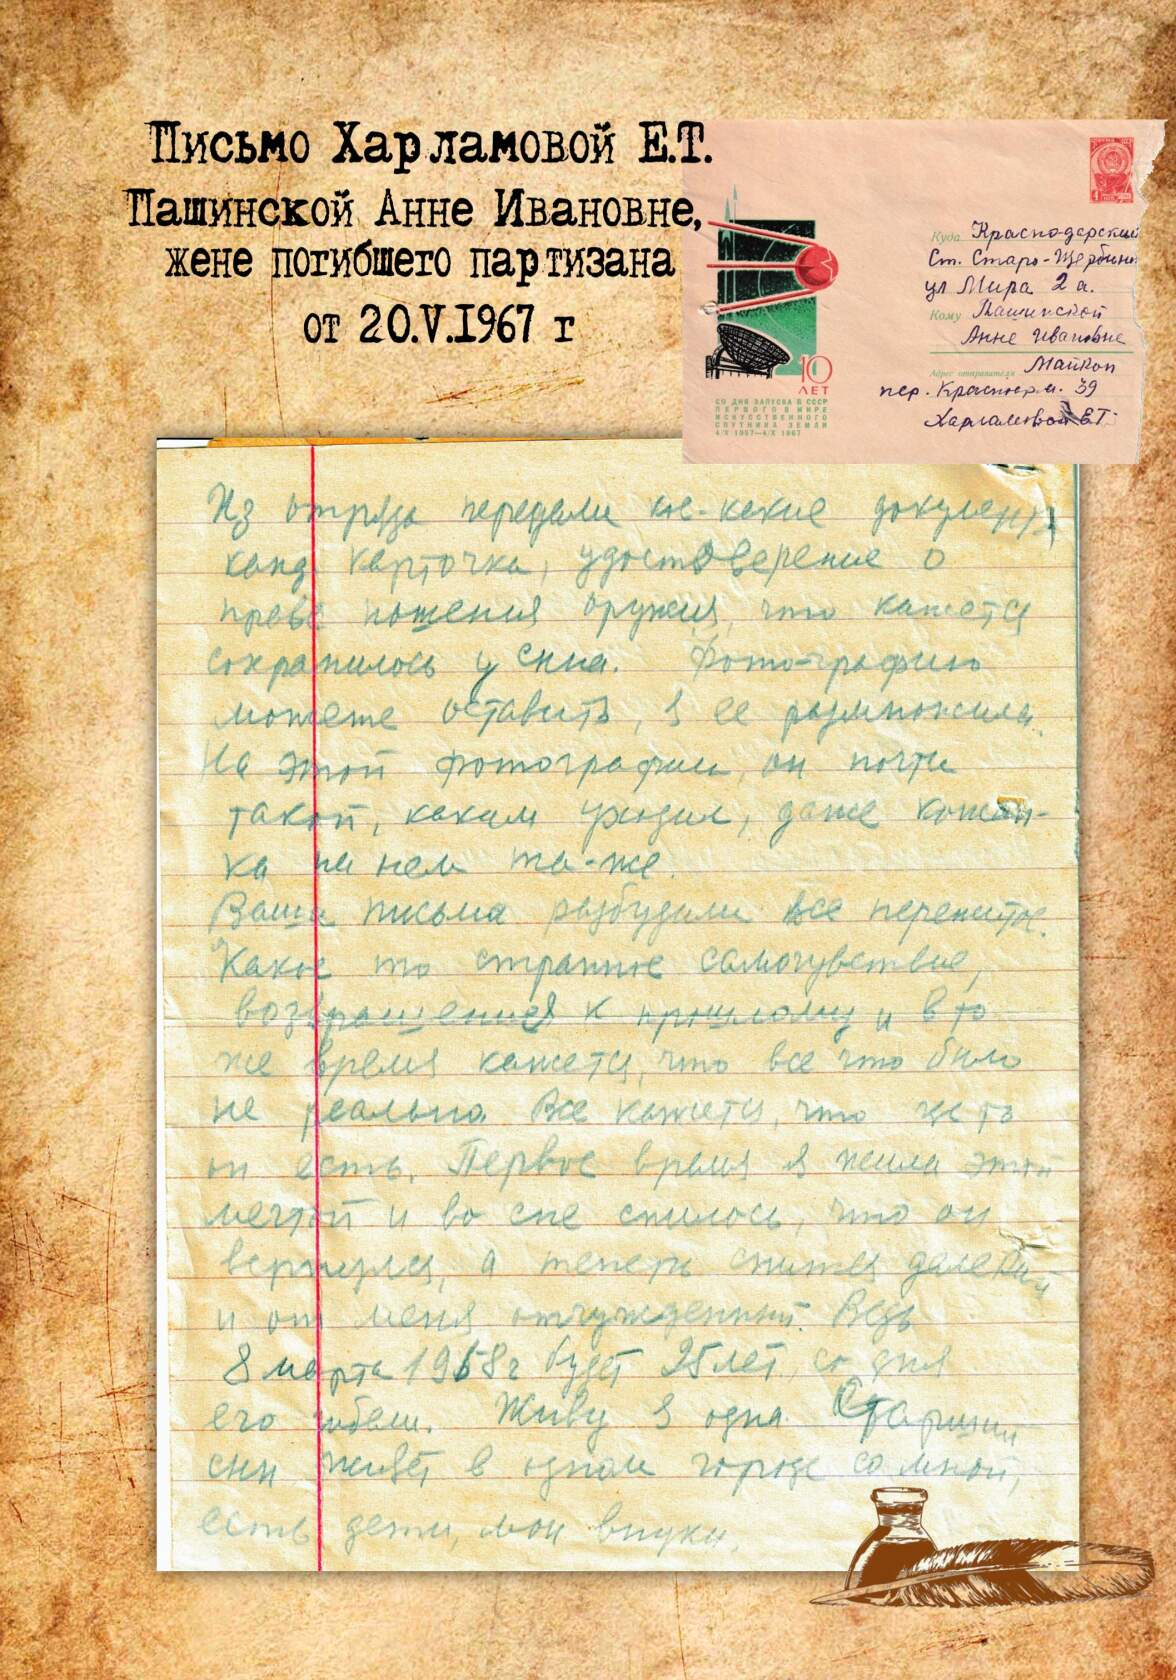 Письмо Харламовой Е.Т.
Пашинской Анне Ивановне,
жене погибшего партизана
от 20.V.1967 г
Куда Краснодарский
Ст. Старо-Щербино
ул Мира 2 а.
Кому Пашинской
Анне Ивановне
Адрес отправителя Майкоп
пер. Красноарм. 39
Харламовой Е.Т.
10
ЛЕТ
СО ДНЯ ЗАПУСКА В СССР
ПЕРВОГО В МИРЕ
ИСКУССТВЕННОГО
СПУТНИКА ЗЕМЛИ
4/X 1957—4/X 1967
Из отряда передали кое-какие документы
канд карточка, удостоверение о
праве ношения оружия, что кажется
сохранилось у сына. Фото-графию
можете оставить, я ее размножила.
На этой фотографии, он почти
такой, каким уходил, даже кожан-
ка на нем та-же.
Ваши письма разбудили все пережитое.
Какое то странное самочувствие,
возвращения к прошлому и в то
же время кажется, что все что было
не реально. Все кажется, что где то
он есть. Первое время я жила этой
мечтой и во сне снилось, что он
вернулся, а теперь снится далекий
и от меня отчужденный. Ведь
8 марта 1968 г будет 25 лет, со дня
его гибели. Живу я одна. Старший
сын живёт в одном городе со мной,
есть дети, мои внуки.